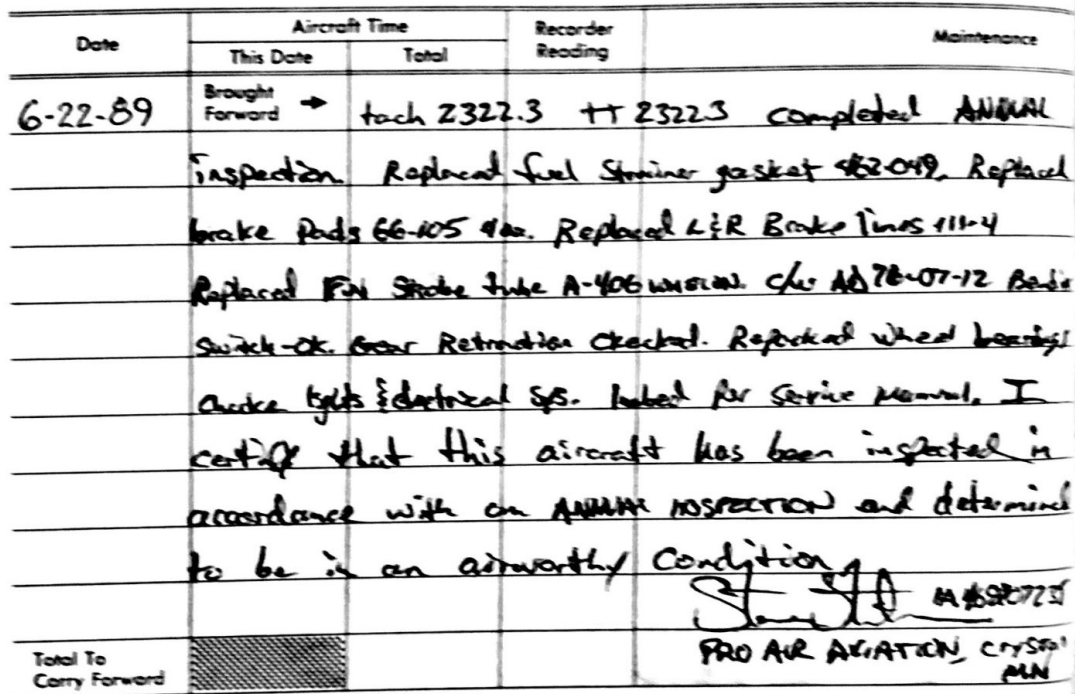 Date
Aircraft Time
Recorder Reading
Maintenance
This Date
Total
6-22-89
Brought Forward → tach 2322.3 TT 2322.3 completed ANNUAL
inspection. Replaced fuel Strainer gasket Replaced
brake Pads 66-105 Replaced L&R Brake lines 111-4
Replaced Strobe tube A-406 WHELEN. C/W AD 76-07-12 Bendix
Switch-OK. Gear Retraction Checked. Repacked wheel bearings
lights & electrical sys. lubed per Service Manual. I
certify that this aircraft has been inspected in
accordance with an ANNUAL INSPECTION and determined
to be in an airworthy Condition
PRO AIR AVIATION, Crystal
MN
Total To Carry Forward